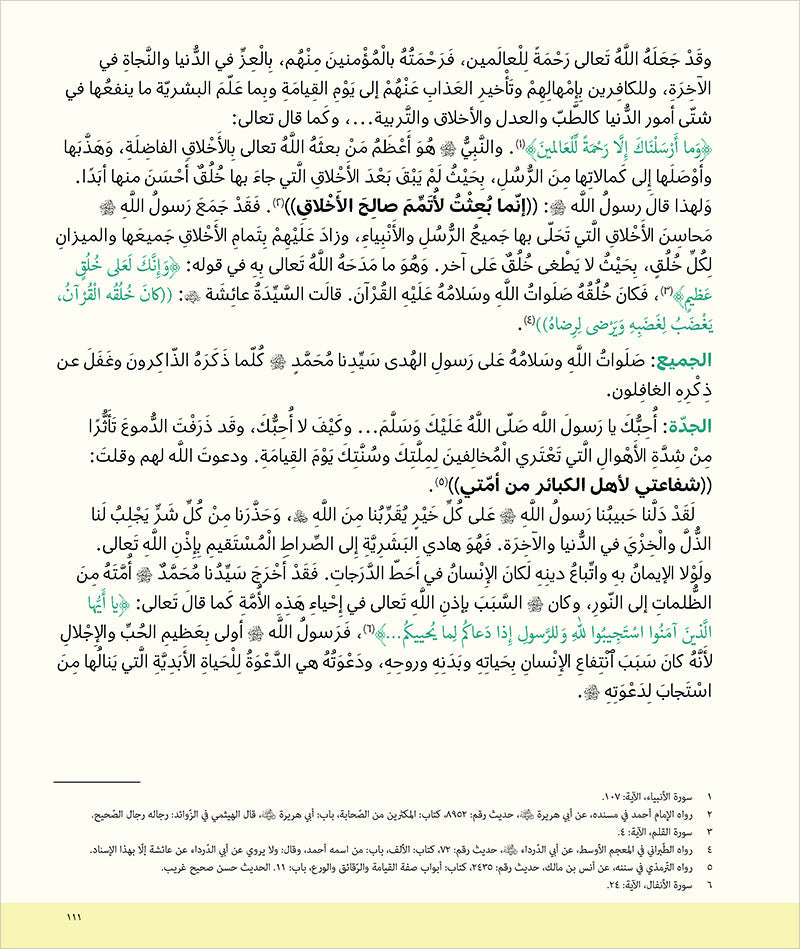 وقَدْ جَعَلَهُ اللَّهُ تَعالى رَحْمَةً لِلْعالَمين، فَرَحْمَتُهُ بالْمُؤْمنينَ مِنْهُم، بِالْعِزِّ في الدُّنيا والنَّجاةِ في
الآخِرَةِ، وللكافِرين بِإمْهالِهِمْ وتَأْخيرِ العَذابِ عَنْهُمْ إلى يَوْمِ القِيامَةِ وبِما عَلّمَ البشريّة ما ينفعُها في
شتّى أمور الدُّنيا كالطِّبّ والعدل والأخلاق والتَّربية...، وكَما قال تعالى:
﴿وَما أَرْسَلْنَاكَ إِلَّا رَحْمَةً لِّلْعَالمينَ﴾(١). والنَّبِيُّ ﷺ هُوَ أَعْظَمُ مَنْ بعثَهُ اللَّهُ تعالى بِالأَخْلاقِ الفاضِلَةِ، وَهَذَّبَها
وأوْصَلَها إلى كَمالاتِها مِنَ الرُّسُلِ، بِحَيْثُ لَمْ يَبْقَ بَعْدَ الأَخْلاقِ الَّتي جاءَ بها خُلُقٌ أحْسَنَ منها أبَدًا.
وَلهذا قالَ رسولُ اللَّه ﷺ: ((إنّما بُعِثْتُ لأُتَمِّمَ صالِحَ الأَخْلاقِ))(٢). فَقَدْ جَمَعَ رَسولُ اللَّهِ ﷺ
مَحاسِنَ الأَخْلاقِ الَّتي تَحَلّى بها جَميعُ الرُّسُلِ والأَنْبِياءِ، وزادَ عَلَيْهِمْ بِتَمامِ الأَخْلاقِ جَميعَها والميزانِ
لِكُلِّ خُلُقٍ، بِحَيْثُ لا يَطْغى خُلُقٌ عَلى آخر. وَهُوَ ما مَدَحَهُ اللَّهُ تَعالى بِهِ في قوله: ﴿وَإِنَّكَ لَعَلى خُلُقٍ
عَظيمٍ﴾(٣)، فَكانَ خُلُقُهُ صَلَواتُ اللَّهِ وسَلامُهُ عَلَيْهِ القُرْآنَ. قالَت السَّيِّدَةُ عائِشَة ﵂: ((كانَ خُلُقُه الْقُرْآنُ،
يَغْضَبُ لِغَضَبِهِ وَيَرْضى لِرِضاهُ))(٤).
الجميع: صَلَواتُ اللَّهِ وسَلامُهُ عَلى رَسولِ الهُدى سَيِّدِنا مُحَمَّدٍ ﷺ كُلّما ذَكَرَهُ الذّاكِرونَ وغَفَلَ عن
ذِكْرِهِ الغافِلون.
الجدّة: أُحِبُّكَ يا رَسولَ اللَّه صَلّى اللَّهُ عَلَيْكَ وَسَلَّمَ... وكَيْفَ لا أُحِبُّكَ، وقَد ذَرَفْتَ الدُّموعَ تَأثُّرًا
مِنْ شِدَّةِ الأَهْوالِ الَّتي تَعْتَري الْمُخالِفينَ لِمِلَّتِكَ وسُنَّتِكَ يَوْمَ القِيامَةِ. ودعوتَ اللَّه لهم وقلتَ:
((شفاعتي لأهل الكبائر من أمّتي))(٥).
لَقَدْ دَلَّنا حَبيبُنا رَسولُ اللَّهِ ﷺ عَلى كُلِّ خَيْرٍ يُقَرِّبُنا مِنَ اللَّهِ ﷻ، وَحَذَّرَنا مِنْ كُلِّ شَرٍّ يَجْلِبُ لَنا
الذُّلَّ والْخِزْيَ في الدُّنيا والآخِرَة. فَهُوَ هادي البَشَرِيَّةِ إلى الصِّراطِ الْمُسْتَقيمِ بِإِذْنِ اللَّهِ تَعالى.
ولَوْلا الإيمانُ بِه واتِّباعُ دينِهِ لَكانَ الإنْسانُ في أحَطّ الدَّرَجاتِ. فَقَدْ أخْرَجَ سَيِّدُنا مُحَمَّدٌ ﷺ أُمَّتَهُ مِنَ
الظُّلماتِ إلى النّورِ، وكان ﷺ السَّبَبَ بإذنِ اللَّهِ تَعالى في إحْياءِ هَذِهِ الأُمَّةِ كَما قالَ تَعالى: ﴿يا أَيُّها
الَّذينَ آمَنُوا اسْتَجيبُوا للهِ وَللرَّسولِ إذا دَعاكُم لِما يُحييكُم...﴾(٦)، فَرَسولُ اللَّه ﷺ أولى بِعَظيمِ الحُبِّ والإجْلالِ
لأنَّهُ كانَ سَبَبَ ٱنْتِفاعِ الإنْسانِ بِحَياتِهِ وبَدَنِهِ وروحِهِ، ودَعْوَتُهُ هي الدَّعْوَةُ لِلْحَياةِ الأَبَدِيَّةِ الَّتي يَنالُها مِنَ
اسْتَجابَ لِدَعْوَتِهِ ﷺ.
١ سورة الأنبياء، الآية: ١٠٧.
٢ رواه الإمام أحمد في مسنده، عن أبي هريرة ﵁، حديث رقم: ٨٩٥٢، كتاب: المكثرين من الصّحابة، باب: أبي هريرة ﵁، قال الهيثمي في الزّوائد: رجاله رجال الصّحيح.
٣ سورة القلم، الآية: ٤.
٤ رواه الطّبراني في المعجم الأوسط، عن أبي الدّرداء ﵁، حديث رقم: ٧٢، كتاب: الألف، باب: من اسمه أحمد، وقال: ولا يروي عن أبي الدّرداء عن عائشة إلّا بهذا الإسناد.
٥ رواه التّرمذي في سننه، عن أنس بن مالك، حديث رقم: ٢٤٣٥، كتاب: أبواب صفة القيامة والرّقائق والورع، باب: ١١. الحديث حسن صحيح غريب.
٦ سورة الأنفال، الآية: ٢٤.
١١١